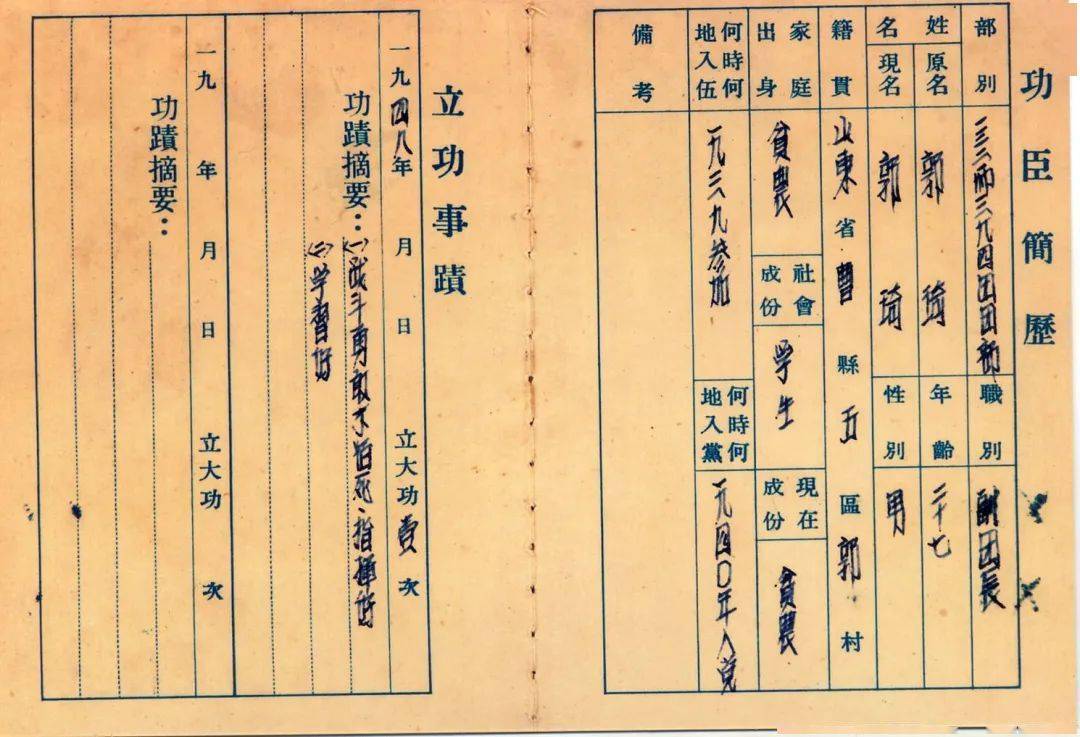 功臣簡歷
部別 一三二師三九四团团部 職別 副团長
姓名 原名 郭琦 年齡 二十七
現名 郭琦 性別 男
籍貫 山東省曹縣五區郭村
家庭出身 貧農 社會成份 学生 現在成份 貧農
何時何地入伍 一九三九参加 何時何地入黨 一九四〇年入党
備考
立功事蹟
一九四八年 月 日 立大功壹次
功蹟摘要：(一)战斗勇敢不怕死、指揮好
(二)学習好
一九 年 月 日 立大功 次
功蹟摘要：